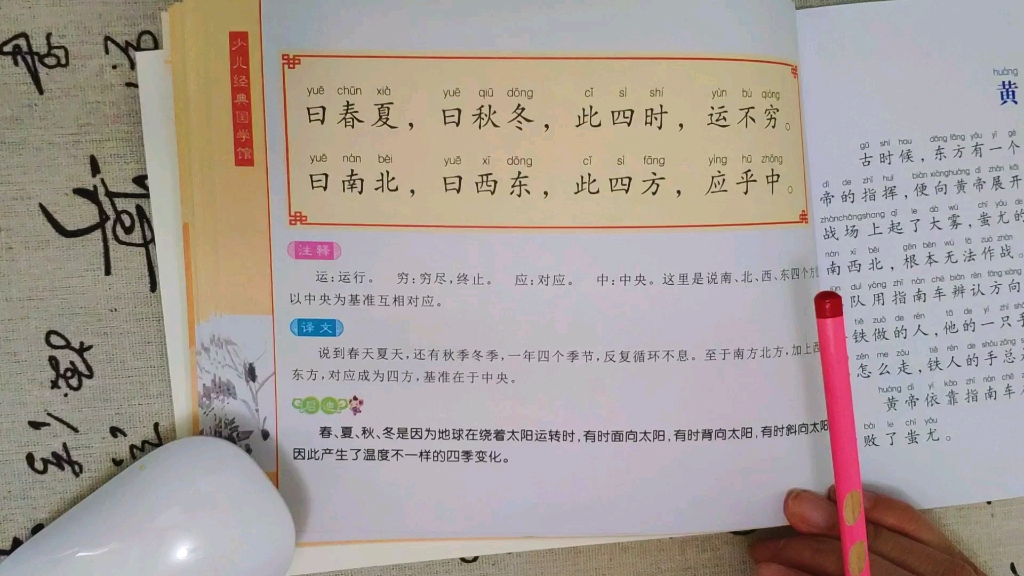 少儿经典国学馆
yuē chūn xià yuē qiū dōng cǐ sì shí yùn bù qióng
曰春夏，曰秋冬，此四时，运不穷。
yuē nán běi yuē xī dōng cǐ sì fāng yìng hū zhōng
曰南北，曰西东，此四方，应乎中。
注释
运：运行。 穷：穷尽，终止。 应：对应。 中：中央。这里是说南、北、西、东四个方
以中央为基准互相对应。
译文
说到春天夏天，还有秋季冬季，一年四个季节，反复循环不息。至于南方北方，加上西
东方，对应成为四方，基准在于中央。
春、夏、秋、冬是因为地球在绕着太阳运转时，有时面向太阳，有时背向太阳，有时斜向太阳
因此产生了温度不一样的四季变化。
huáng
黄
gǔ shí hou dōng fāng yǒu yí gè
古时候，东方有一个
dì de zhǐ huī biàn xiàng huáng dì zhǎn kāi
帝的指挥，便向黄帝展开
zhàn chǎng shang qǐ le dà wù chī yóu de
战场上起了大雾，蚩尤的
nán xī běi gēn běn wú fǎ zuò zhàn
南西北，根本无法作战。
duì yòng zhǐ nán chē biàn rèn fāng xiàng
队用指南车辨认方向
tiě zuò de rén tā de yì zhī
铁做的人，他的一只
zěn me zǒu tiě rén de shǒu zǒng
怎么走，铁人的手总
huáng dì yī kào zhǐ nán chē
黄帝依靠指南车
bài le chī yóu
败了蚩尤。